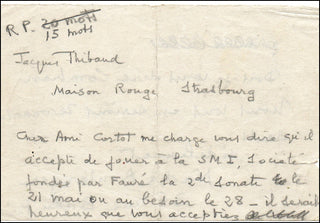 R P. 20 mots
15 mots
Jacques Thibaud
Maison Rouge, Strasbourg
Cher Ami Cortot me charge vous dire qu'il
accepte de jouer à la S M I, Société
fondée par Fauré la 2de Sonate le
21 mai ou au besoin le 28 - il serait
heureux que vous acceptiez